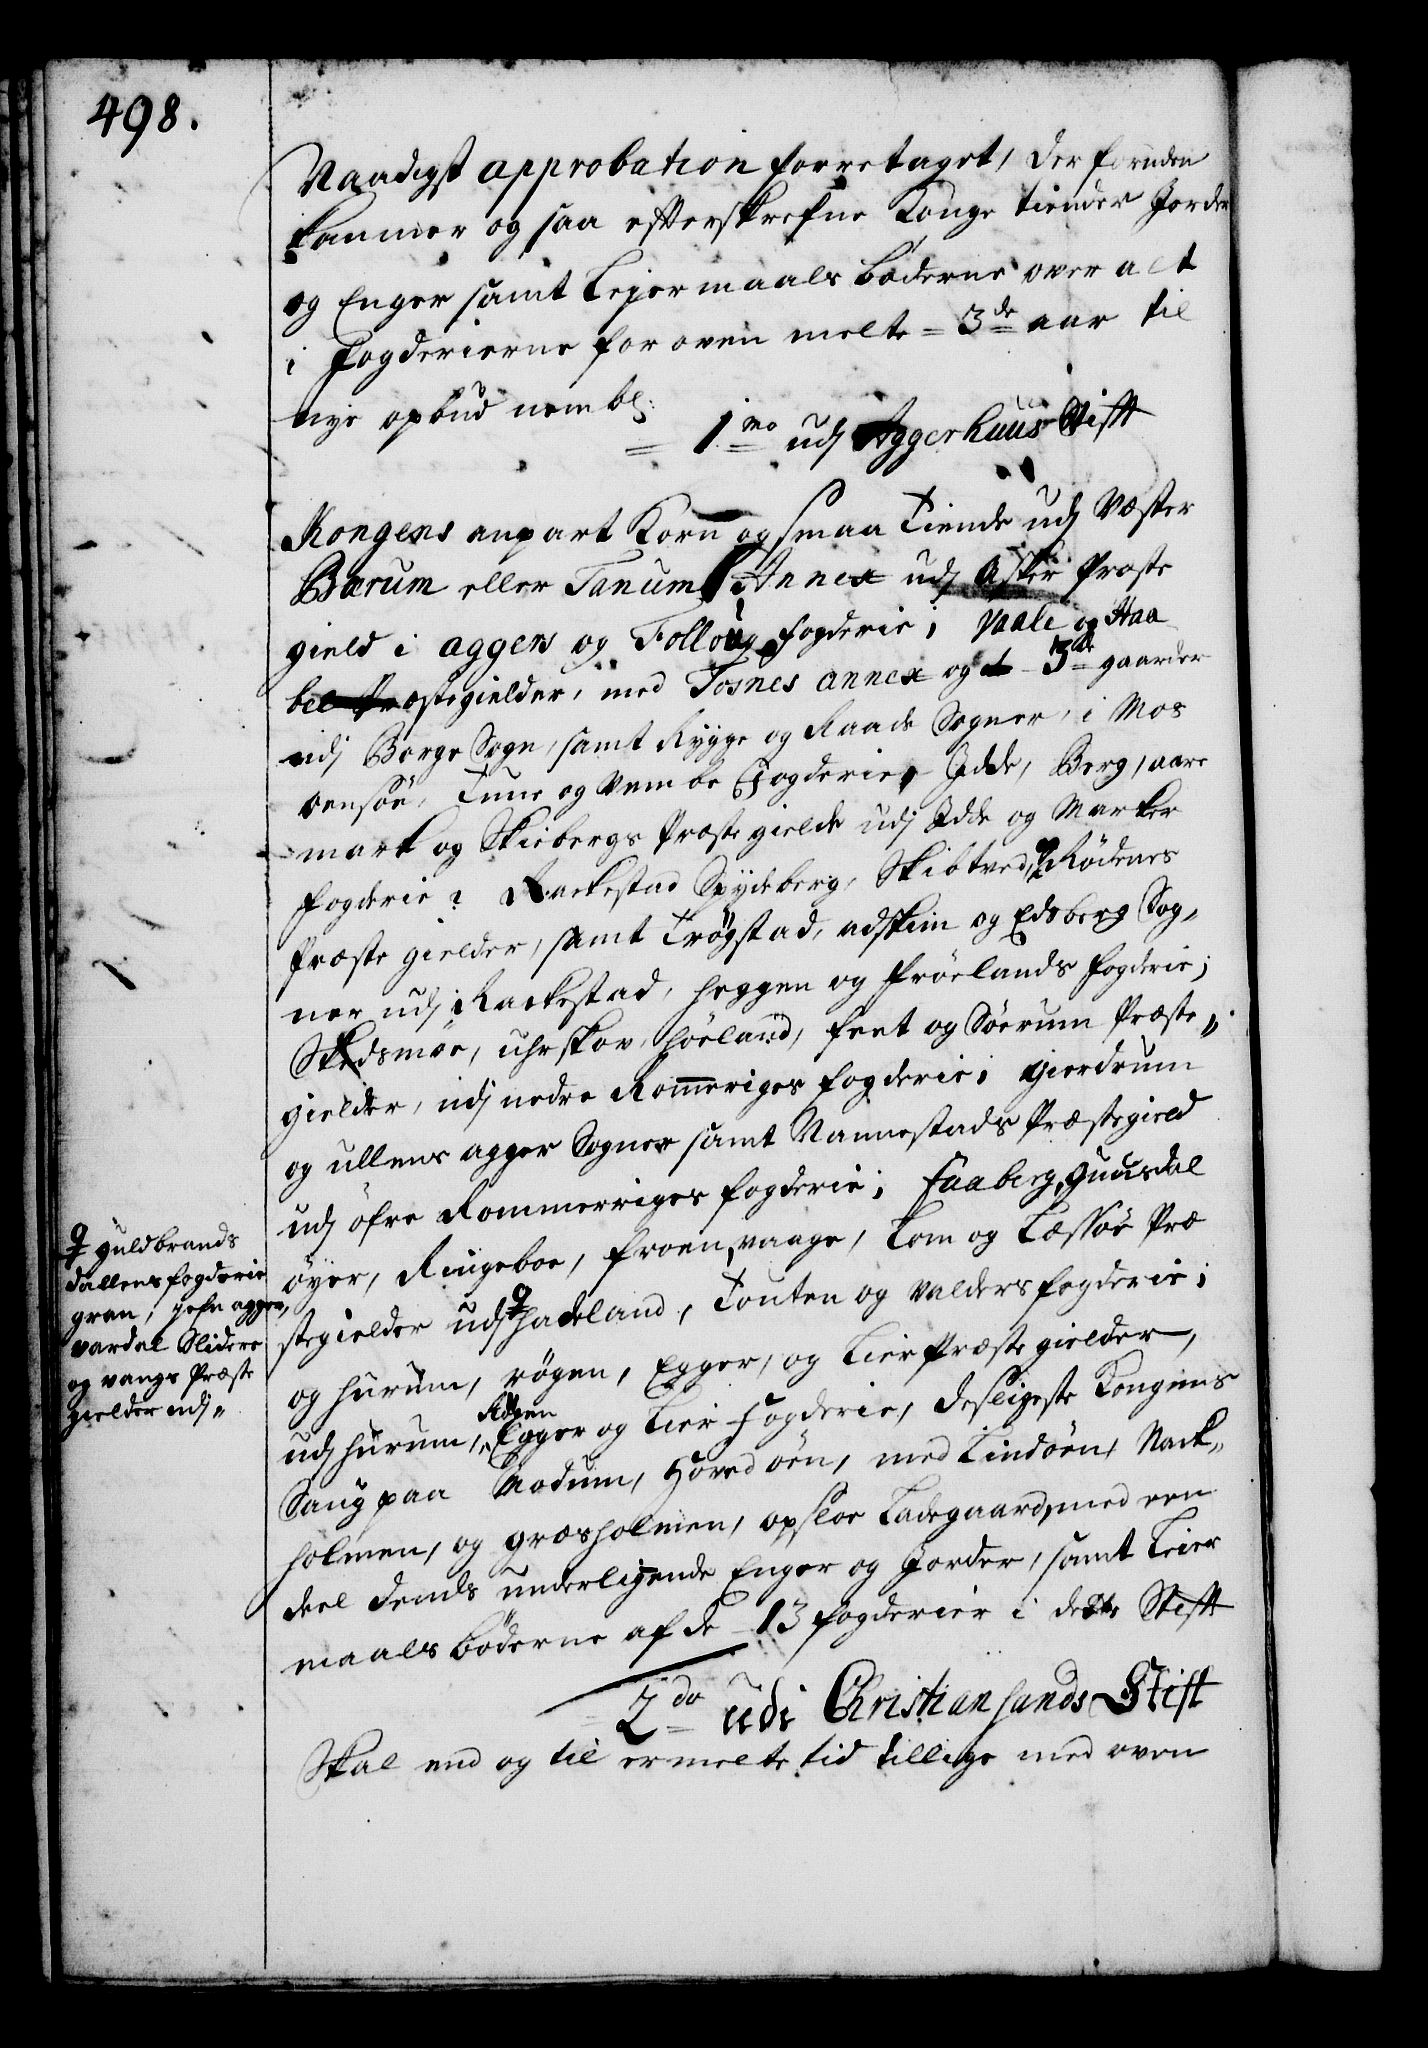 498.
Naadigst approbation forretaget, der foruden
kommer og saa efterskrefne Konge tiender Jorder
og Enger samt Leiermaals bøderne over alt
i Fogderierne for oven melte = 3de aar til
nye opbud nembl:
= 1mo udj Aggerhuus Stift
Kongens anpart Korn og smaa Tiende udj Væster
Bærum eller Tanums Annex udj Asker Præste
gield i aggers og Folloug fogderie; Vaale og Haa
bel Præstegielder, med Tosnes annex og 3de gaarder
udj Borge Sogn, samt Rygge og Raade Sogner, i Mos
oensøe, Tune og Vembe Fogderie, Idde, Berg, aare
mark og Skiebergs Præste gielde udj Idde og Marker
fogderie; Rackestad Spydeberg, Skibtved, og Rødenes
Præste gielder, samt Trøgstad, adskim og Edsberg Sog„
ner udj Rackestad, heggen og frøelands fogderie;
Skedsmoe, uhrskov, høeland, feet og Søerum Præste„
gielder, udj nedre Rommeriges fogderie; gierdrum
og ullens agger Sogner samt Nannestads Præstegield
udj øfre Rommerriges fogderie; Faaberg, Guusdal
øyer, Ringeboe, froen, vaage, Lom og Læssøe Præ
stegielder udj ♀ hadeland, Touten og Valders fogderie;
og hurum, røgen, Egger, og Lier Præste gielder,
udj hurum, Røgen Egger og Lier Fogderie, desligeste Kongens
Saug paa Modum, Hoved øen, med Lindøen, Nack„
holmen, og græsholmen, opsloe Ladegaard, med een
deel dends underligende Enger og Jorder, samt Leier
maals bøderne af de 13 fogderier i dette Stift
2do udi Christiansands Stift
Skal end og til ermelte tid tillige med oven
♀ guldbrands
dallens fogderie
gran, hefn agger,
vardal Slidere
og vangs Præste
gielder udj„